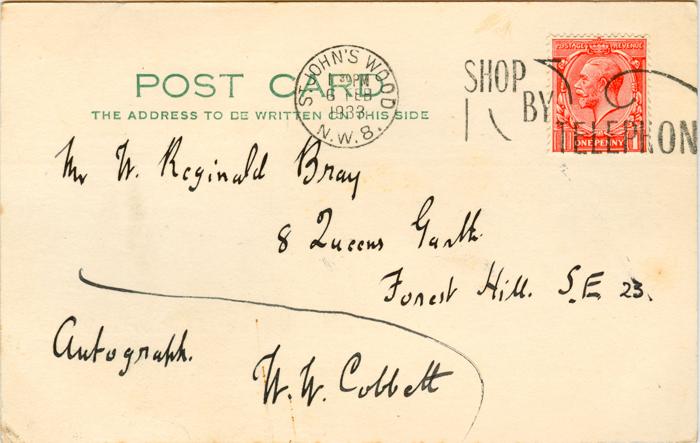 POST CARD
THE ADDRESS TO BE WRITTEN ON THIS SIDE
ST JOHN'S WOOD
30PM
6 FEB
1933
N.W.8.
SHOP
BY
TELEPHON
POSTAGE REVENUE
ONE PENNY
Mr W. Reginald Bray
8 Queens Garth
Forest Hill. S.E. 23.
Autograph.
W. W. Cobbett